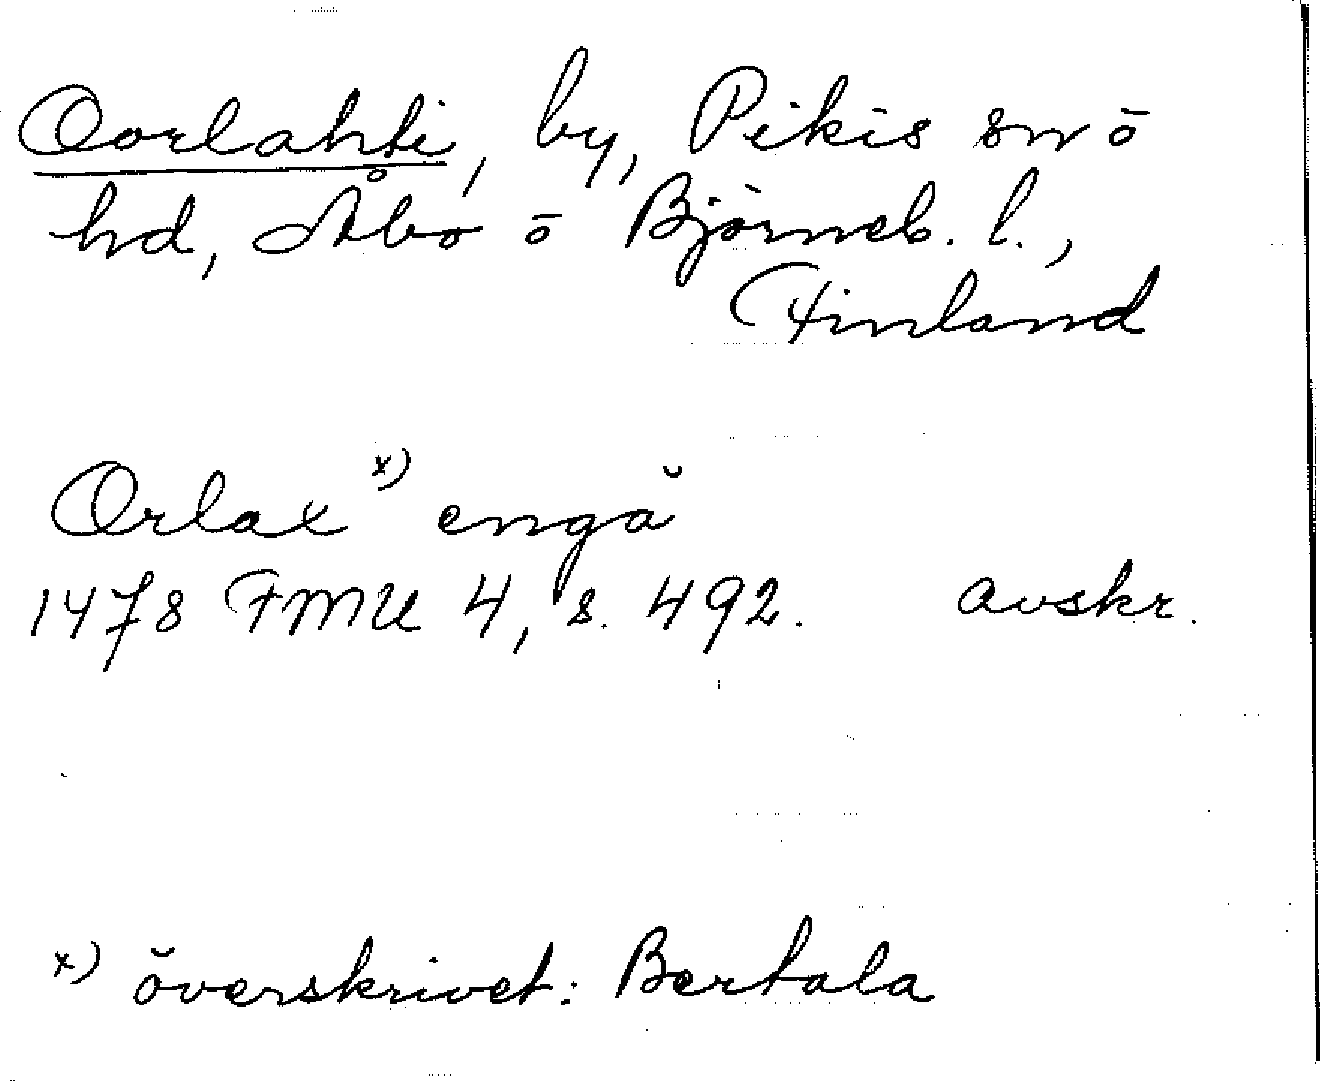 Oorlahti, by, Pikis sn o
hd, Åbo o Björneb. l.,
Finland
Orlax x) engă
1478 FMU 4, s. 492. avskr.
x) överskrivet: Bertala